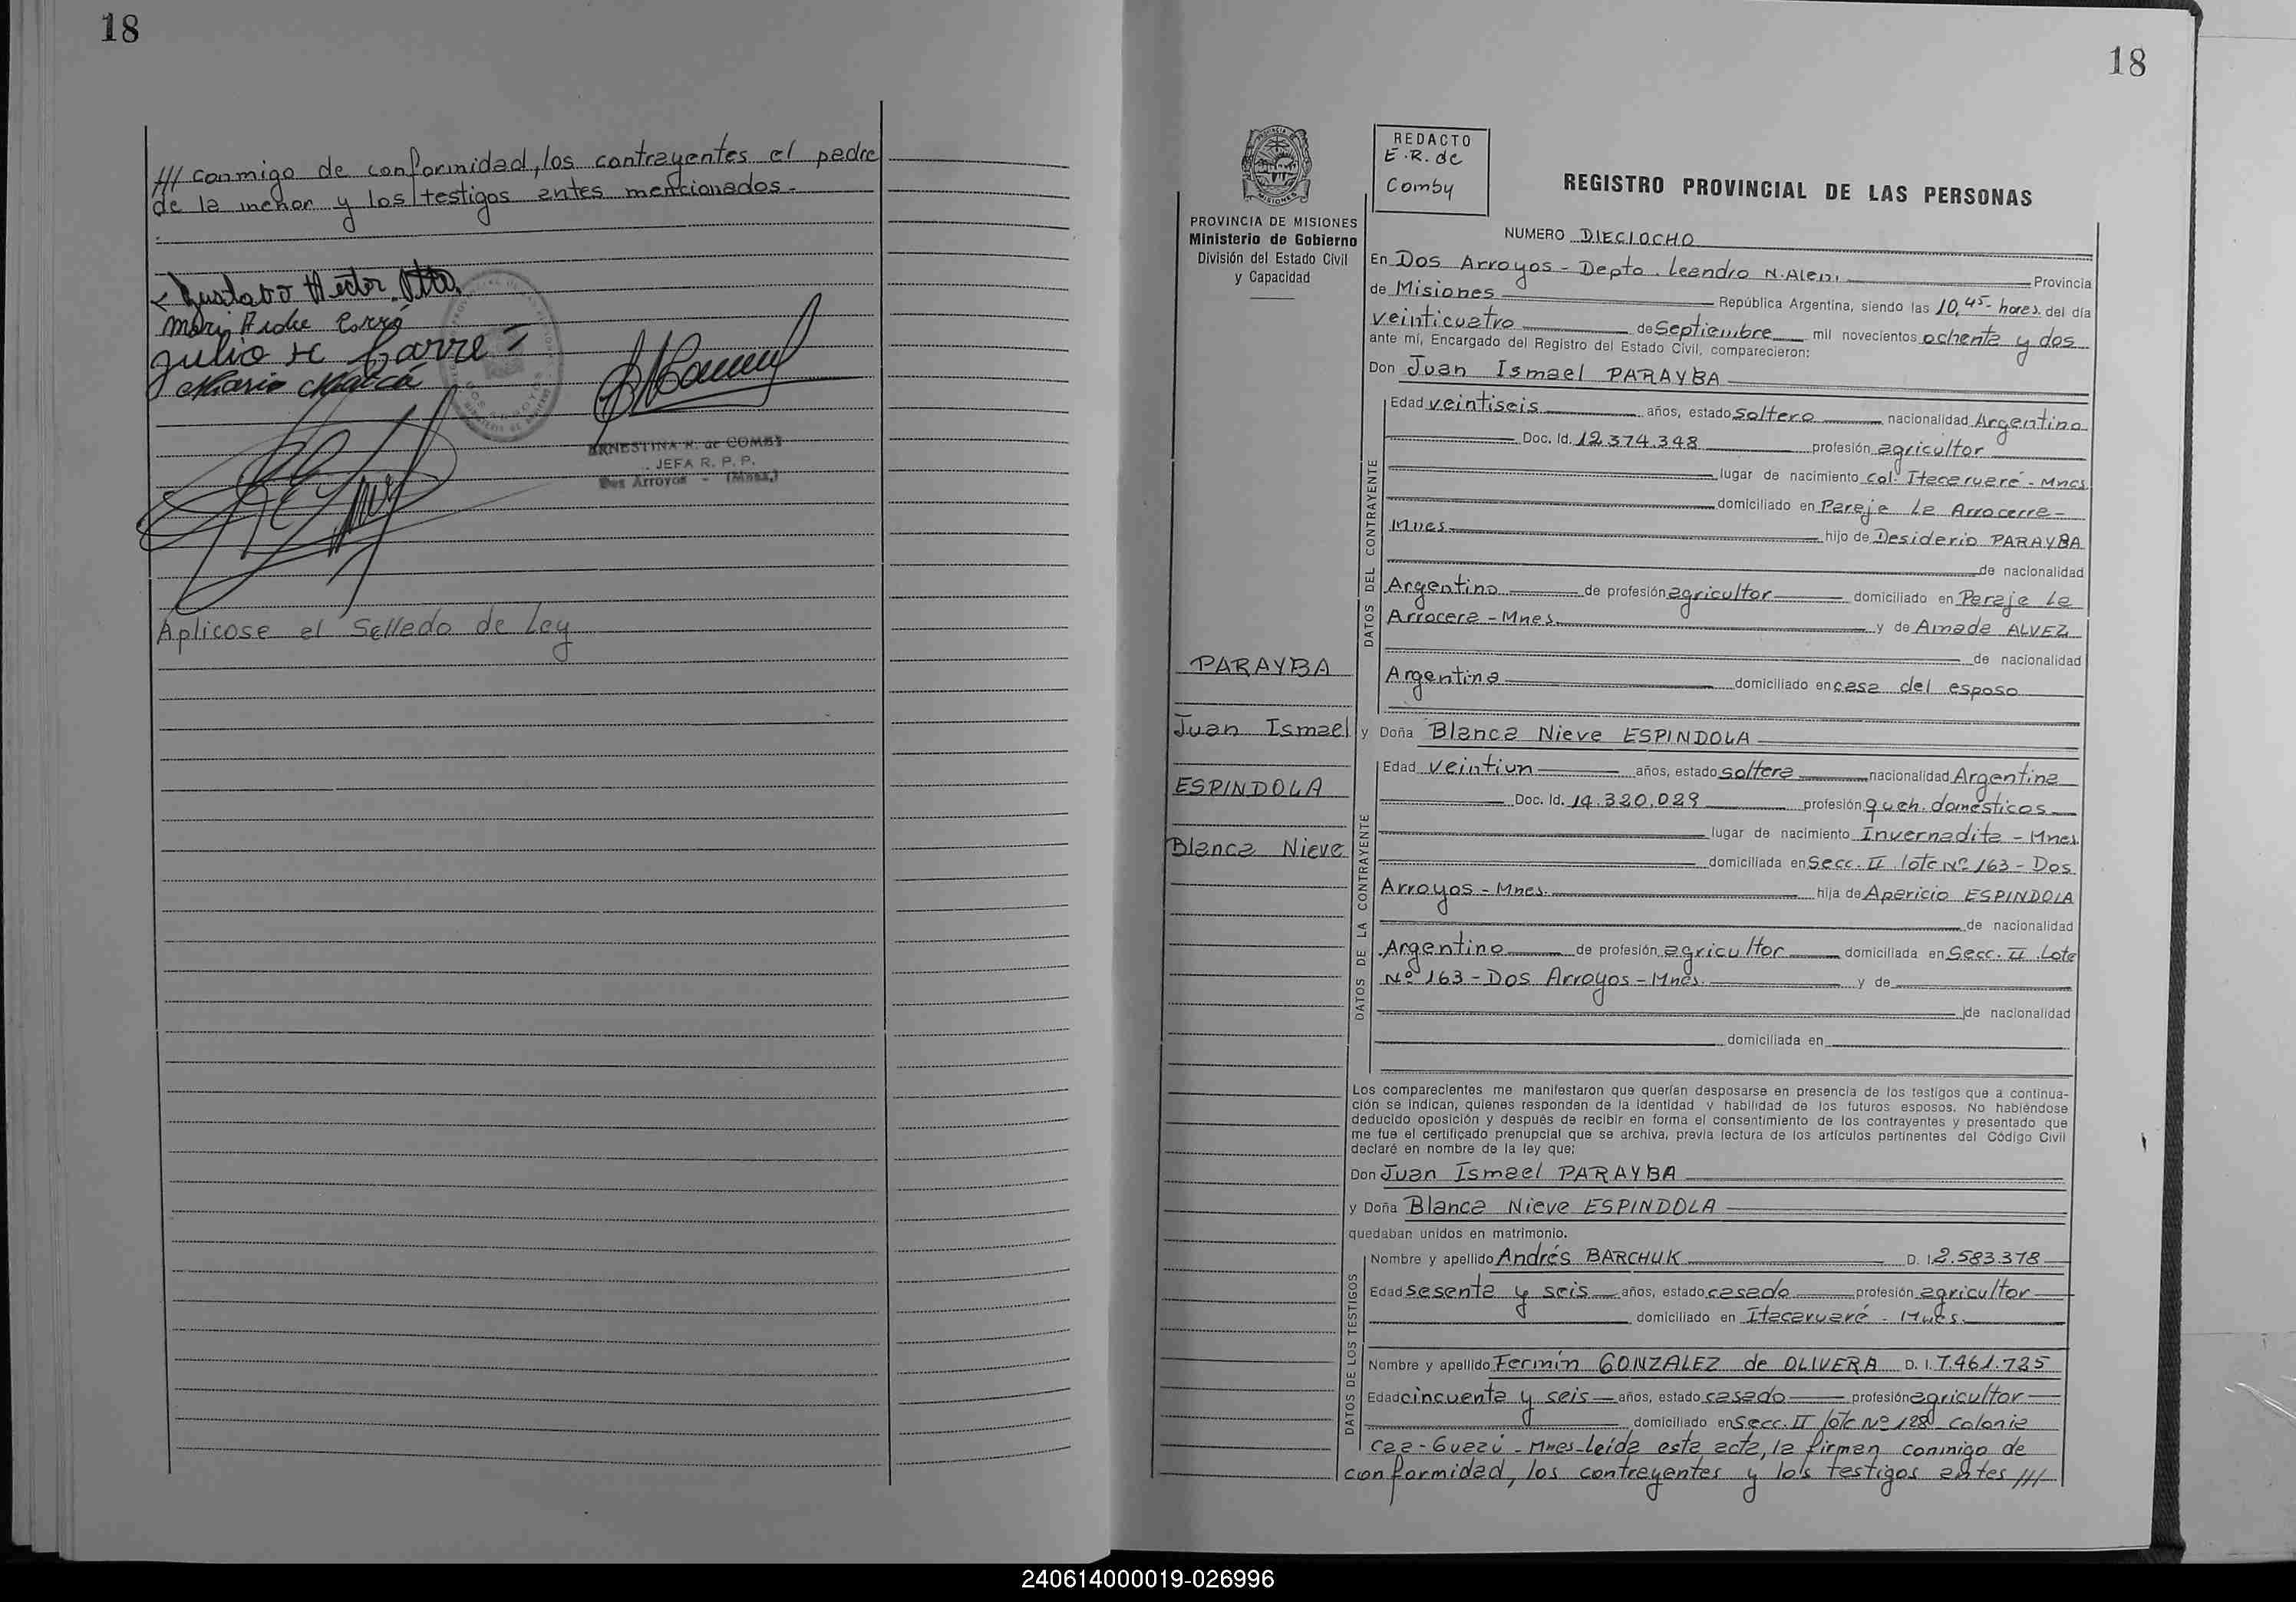 18
/// conmigo de conformidad, los contrayentes el padre
de la menor y los testigos antes mencionados.-
Gustavo Hector Otto
Julio H Carré
Mario
ERNESTINA R. de COMBY
JEFA R. P. P.
Dos Arroyos - (Mnes.)
Aplicose el Sellado de Ley
18
REDACTO
E.R. de
Comby
MISIONES
REGISTRO PROVINCIAL DE LAS PERSONAS
PROVINCIA DE MISIONES
Ministerio de Gobierno
División del Estado Civil
y Capacidad
PARAYBA
Juan Ismael
ESPINDOLA
Blanca Nieve
NUMERO DIECIOCHO
En Dos Arroyos - Depto. Leandro N. Alem. Provincia
de Misiones República Argentina, siendo las 10,45- horas del día
veinticuatro de Septiembre mil novecientos ochenta y dos
ante mí, Encargado del Registro del Estado Civil, comparecieron:
Don Juan Ismael PARAYBA
DATOS DEL CONTRAYENTE
Edad veintiseis años, estado soltero nacionalidad Argentino
Doc. Id. 12.374.348 profesión agricultor
lugar de nacimiento Col. Itacaruaré - Mnes
domiciliado en Paraje La Arrocera-
Mnes. hijo de Desiderio PARAYBA
de nacionalidad
Argentino de profesión agricultor domiciliado en Paraje La
Arrocera - Mnes. y de Amada ALVEZ
de nacionalidad
Argentina domiciliado en casa del esposo
y Doña Blanca Nieve ESPINDOLA
DATOS DE LA CONTRAYENTE
Edad veintiun años, estado soltera nacionalidad Argentina
Doc. Id. 14.320.029 profesión queh. domésticos
lugar de nacimiento Invernadita - Mnes
domiciliada en Secc. II lote Nº 163 - Dos
Arroyos - Mnes. hija de Aparicio ESPINDOLA
de nacionalidad
Argentino de profesión agricultor domiciliada en Secc. II Lote
Nº 163 - Dos Arroyos - Mnes. y de
de nacionalidad
domiciliada en
Los comparecientes me manifestaron que querían desposarse en presencia de los testigos que a continua-
ción se indican, quienes responden de la identidad y habilidad de los futuros esposos. No habiéndose
deducido oposición y después de recibir en forma el consentimiento de los contrayentes y presentado que
me fue el certificado prenupcial que se archiva, previa lectura de los artículos pertinentes del Código Civil
declaré en nombre de la ley que:
Don Juan Ismael PARAYBA
y Doña Blanca Nieve ESPINDOLA
quedaban unidos en matrimonio.
DATOS DE LOS TESTIGOS
Nombre y apellido Andrés BARCHUK D. I. 2.583.378
Edad sesenta y seis años, estado casado profesión agricultor
domiciliado en Itacaruaré - Mnes.
Nombre y apellido Fermín GONZALEZ de OLIVERA D. I. 7.461.725
Edad cincuenta y seis años, estado casado profesión agricultor
domiciliado en Secc. II lote Nº 128 Colonia
Caa-Guazú - Mnes - Leída esta acta, la firman conmigo de
conformidad, los contrayentes y los testigos antes ///
240614000019-026996